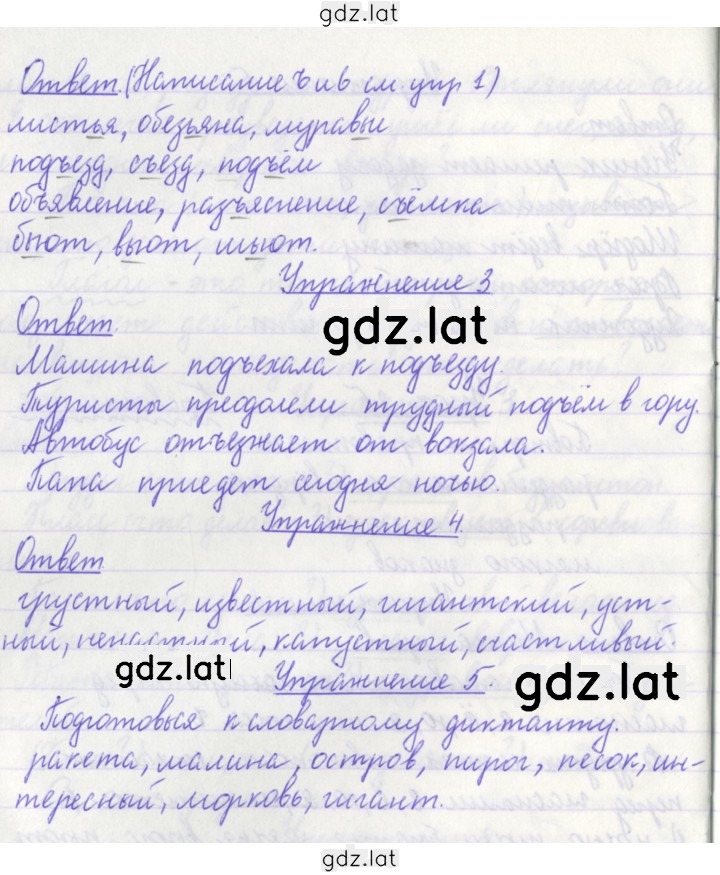 gdz.lat
Ответ. (Написание ъ и ь см. упр 1)
листья, обезьяна, муравьи
подъезд, съезд, подъём
объявление, разъяснение, съёмка
бьют, вьют, шьют.
Упражнение 3
Ответ.
gdz.lat
Машина подъехала к подъезду.
Туристы преодолели трудный подъём в гору.
Автобус отъезжает от вокзала.
Папа приедет сегодня ночью.
Упражнение 4
Ответ
грустный, известный, гигантский, уст-
ный, ненастный, капустный, счастливый.
gdz.lat
Упражнение 5
gdz.lat
Подготовься к словарному диктанту.
ракета, малина, остров, пирог, песок, ин-
тересный, морковь, гигант.
gdz.lat